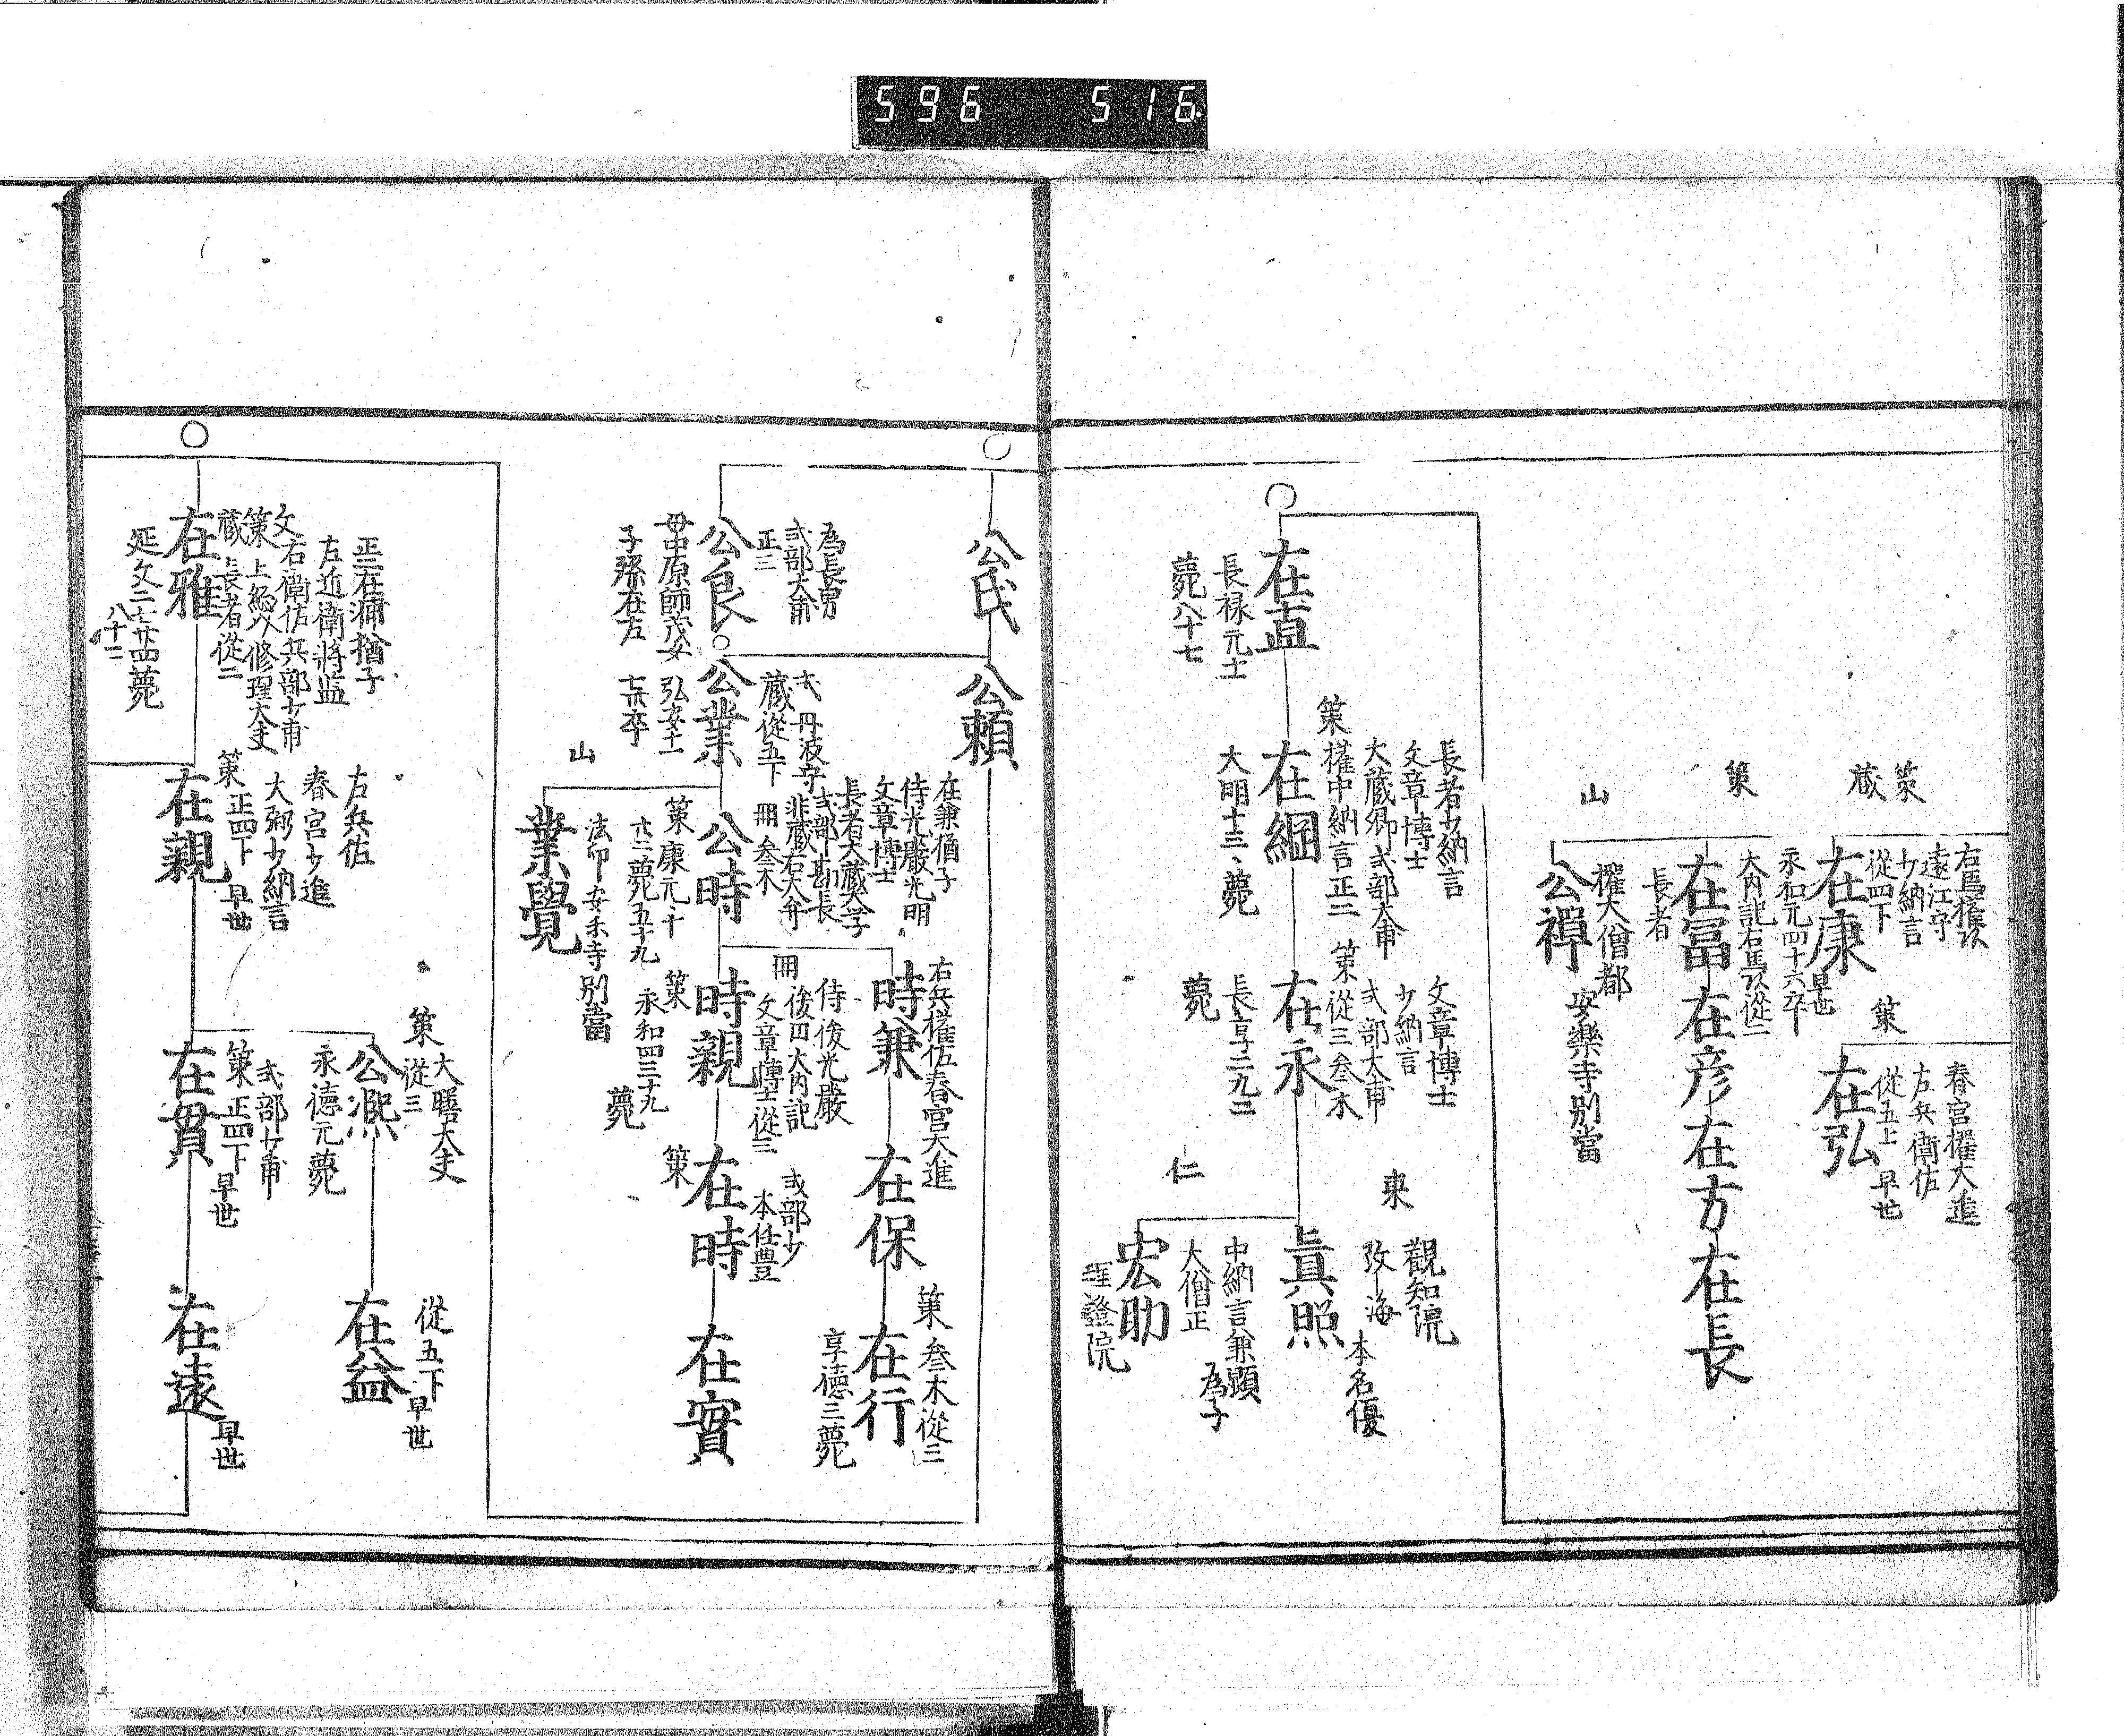 596 516
策
蔵
右馬權頭
遠江守
少納言
從四下
在康
早世
策
春宮權大進
左兵衛佐
從五上 早世
在弘
策
永和元四十六卒
大内記右馬頭從二
在富
長者
在彦
在方
在長
山
權大僧都
公禅
安樂寺別當
在直
長禄元士
薨八十七
長者少納言
文章博士
大蔵卿式部大甫
策
權中納言正二
在綱
大明十三、薨
文章博士
少納言
式部大甫
策從三叅木
在永
長享二九二
薨
東
觀知院
改海
本名優
眞照
仁
中納言兼顕
為子
大僧正
宏助
理證院
公氏
公頼
為長男
式部大甫
正三
公良
母中原師茂女
子孫在左
式 丹波守
蔵從五下
公業
弘安十一
七卅卒
在兼猶子
侍光嚴光明
文章博士
長者大蔵大学
式部勘長
非蔵右大弁
冊叅木
公時
策康元、十
廿二薨五十九
山
業覺
法印安禾寺別當
右兵權佐春宮大進
時兼
在保
策叅木從三
在行
享德三薨
冊
侍後光嚴
後円大内記
文章博士從三
時親
策
永和四三十九
薨
式部少
本任豊
策
在時
在實
正三在浦猶子
左近衛將監
文右衛佐兵部少甫
策上總从修理大夫
蔵長者從二
在雅
延文二七廿四薨
八十二
右兵佐
春宮少進
大弼少納言
策正四下 早世
在親
策
大膳大夫
從三
公凞
永德元薨
從五下 早世
在益
式部少甫
策正四下 早世
在貫
在遠
早世